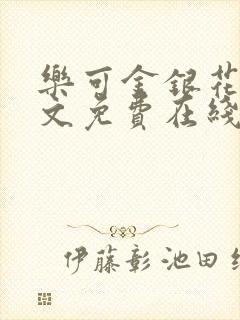 樂可金銀花
文免費在綫
伊藤彰池田